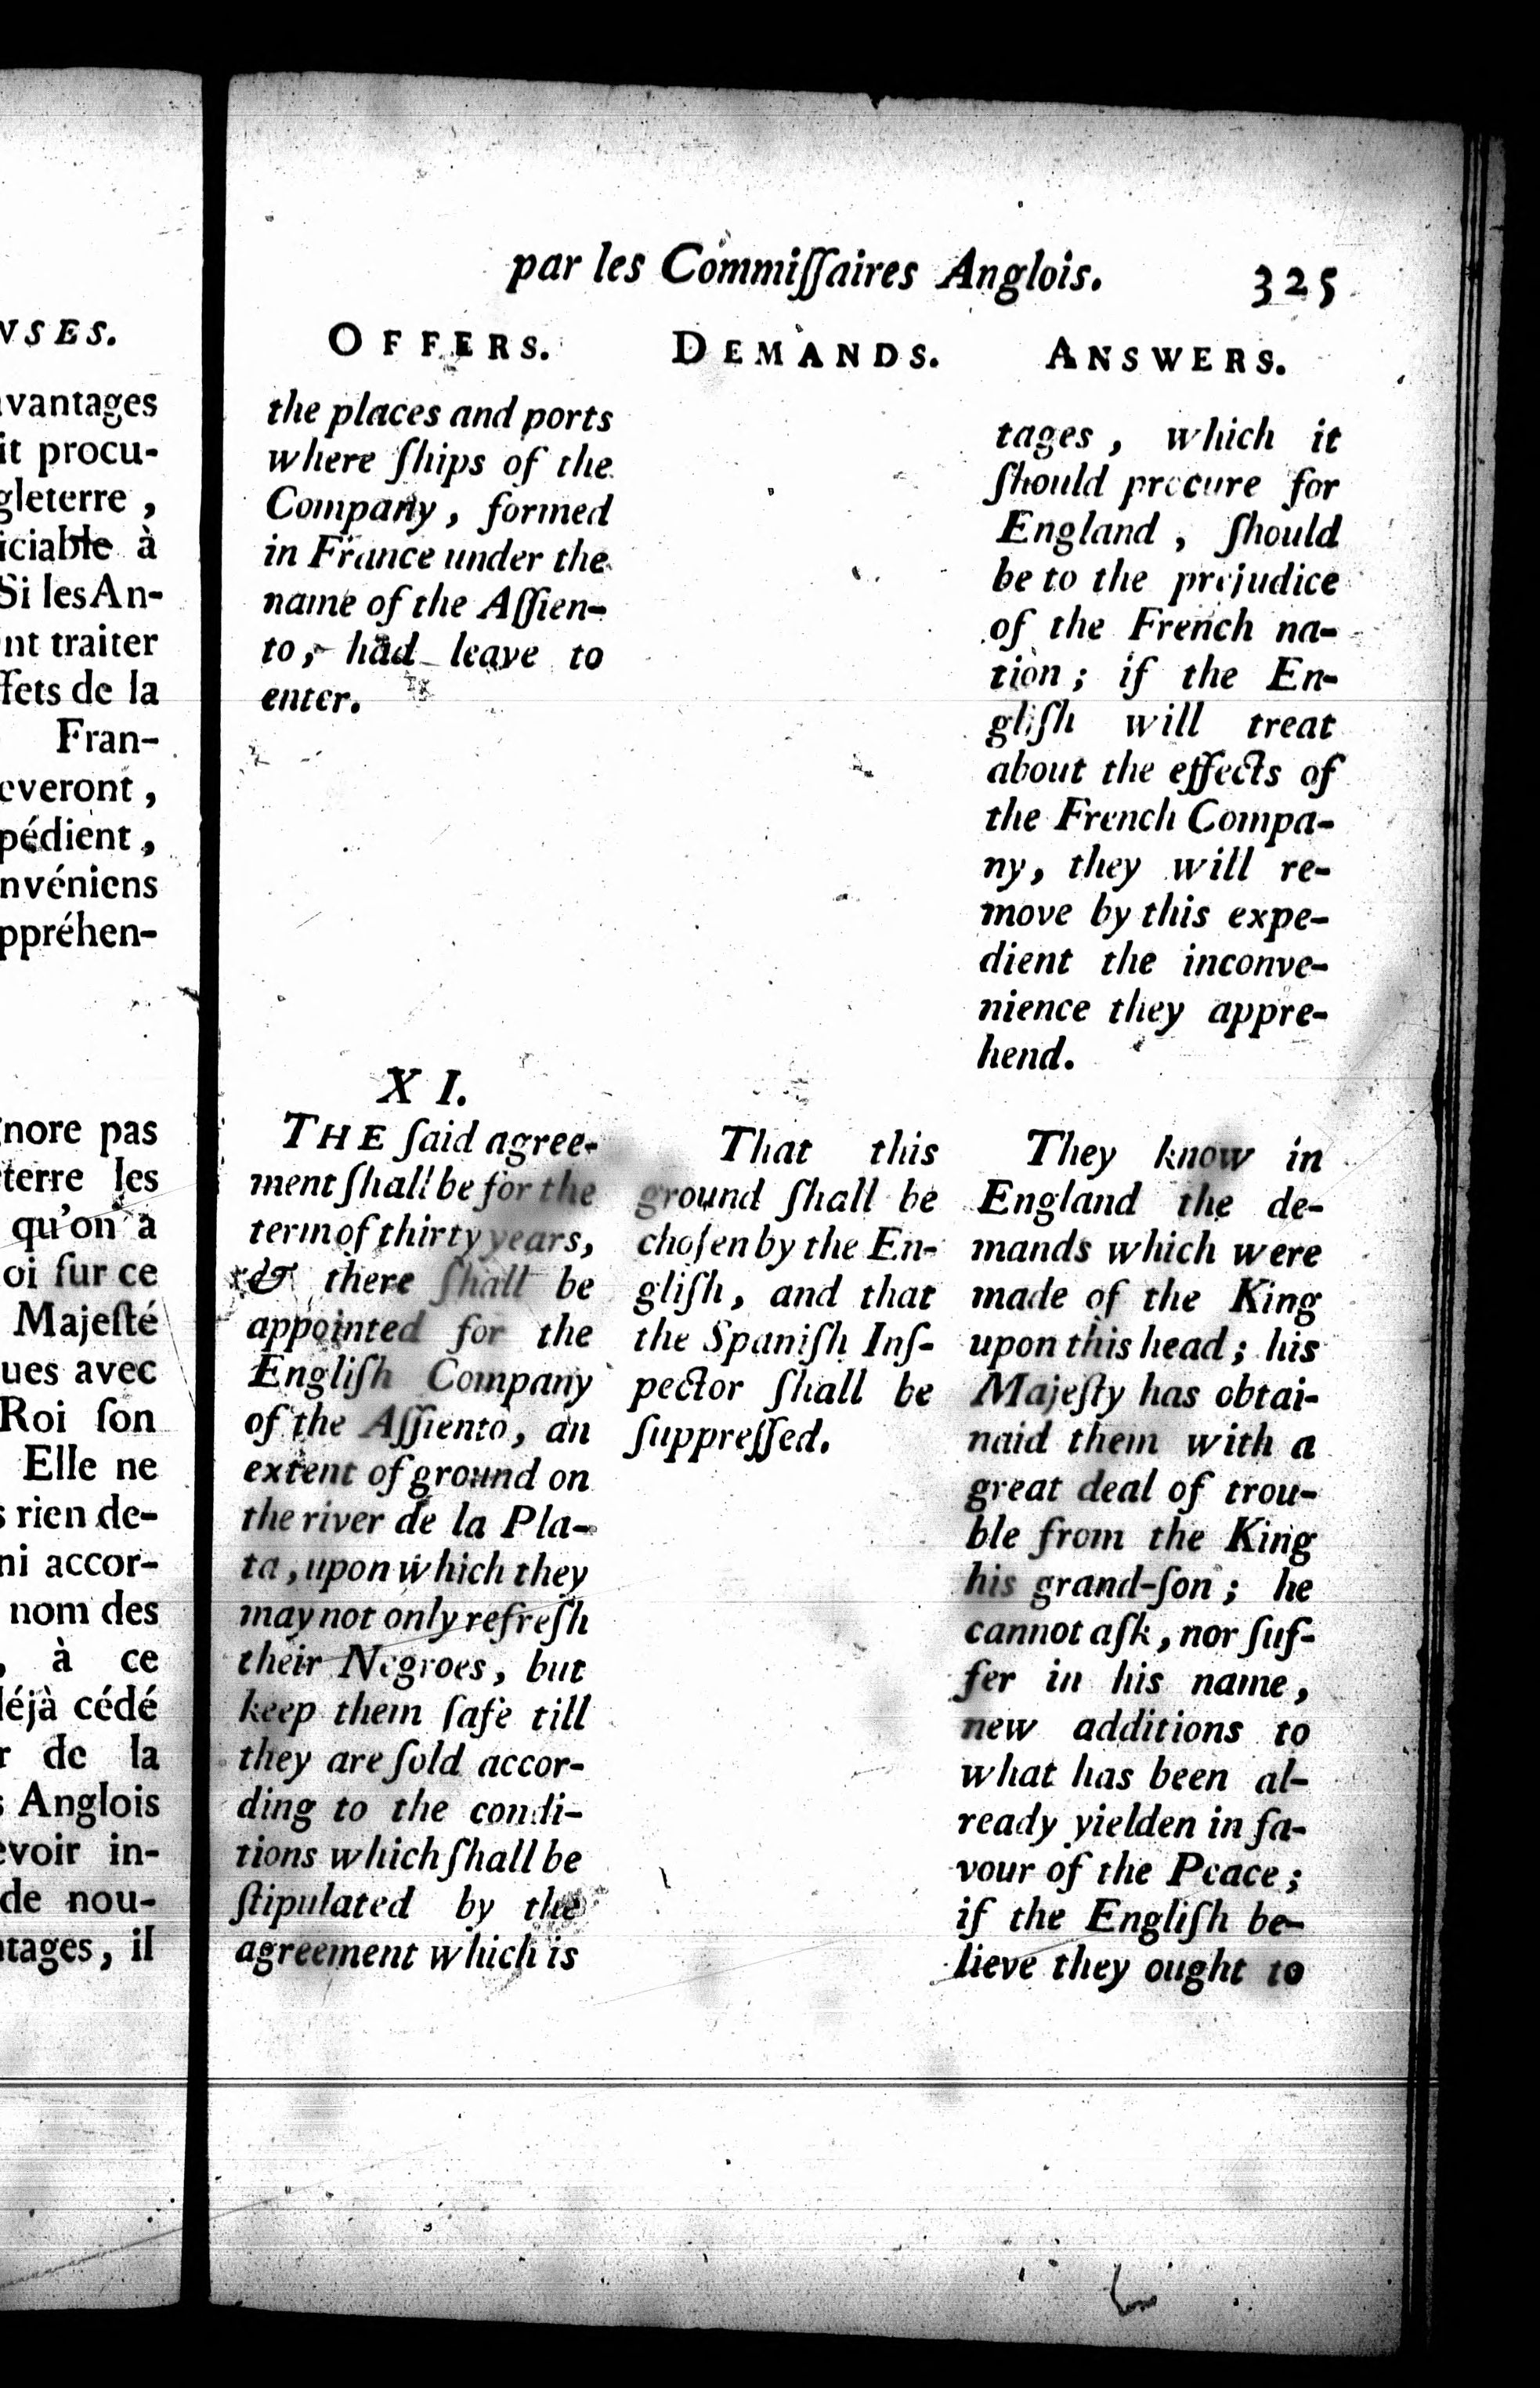 NSES.
avantages
it procu-
gleterre ,
iciable à
Si les An-
nt traiter
ffets de la
Fran-
everont ,
pédient ,
nvéniens
ppréhen-
nore pas
terre les
qu'on a
oi ſur ce
Majeſté
ues avec
Roi ſon
Elle ne
s rien de-
ni accor-
nom des
, à ce
léjà cédé
r de la
s Anglois
evoir in-
de nou-
tages, il
par les Commiſſaires Anglois. 325
OFFERS.
the places and ports
where ſhips of the
Company, formed
in France under the
name of the Aſſien-
to, had leave to
enter.
XI.
THE ſaid agree-
ment ſhall be for the
term of thirty years,
& there ſhall be
appointed for the
Engliſh Company
of the Aſſiento, an
extent of ground on
the river de la Pla-
ta, upon which they
may not only refreſh
their Negroes, but
keep them ſafe till
they are ſold accor-
ding to the condi-
tions which ſhall be
ſtipulated by the
agreement which is
DEMANDS.
That this
ground ſhall be
choſen by the En-
gliſh, and that
the Spaniſh Inſ-
pector ſhall be
ſuppreſſed.
ANSWERS.
tages, which it
ſhould procure for
England, ſhould
be to the prejudice
of the French na-
tion; if the En-
gliſh will treat
about the effects of
the French Compa-
ny, they will re-
move by this expe-
dient the inconve-
nience they appre-
hend.
They know in
England the de-
mands which were
made of the King
upon this head; his
Majeſty has obtai-
naid them with a
great deal of trou-
ble from the King
his grand-ſon; he
cannot aſk, nor ſuf-
fer in his name,
new additions to
what has been al-
ready yielden in fa-
vour of the Peace;
if the Engliſh be-
lieve they ought to